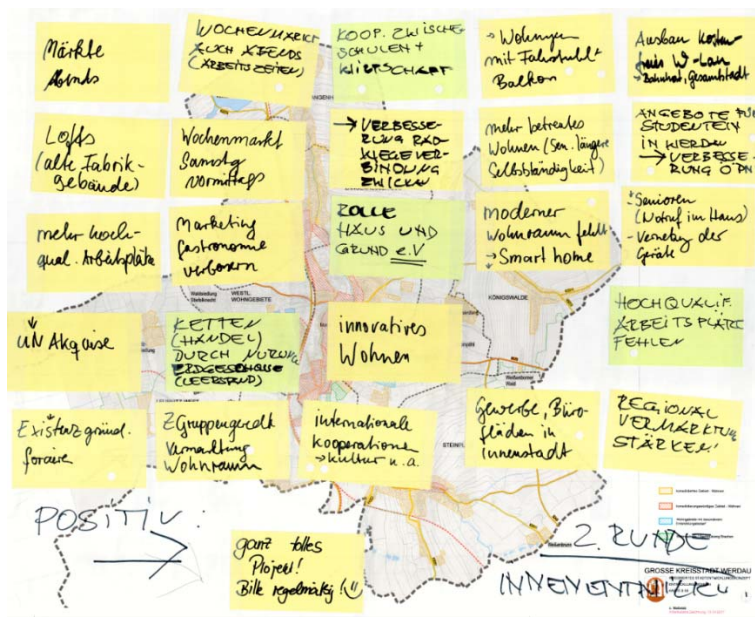 Märkte
Abends
WOCHENMARKT
AUCH ABENDS
(ARBEITSZEITEN)
KOOP. ZWISCHE
SCHULEN +
WIRTSCHAFT
→ Wohnungen
mit Fahrstuhl +
Balkon
Ausbau kosten
freies W-Lan
→ Bahnhof, Gesamtstadt
Lofts
(alte Fabrik-
gebäude)
Wochenmarkt
Samstg
vormittags
→ VERBESSE-
RUNG RAD
WEGEVER-
BINDUNG
ZWICKAU
mehr betreutes
Wohnen (Sen. längere
Selbständigkeit)
ANGEBOTE FÜR
STUDENTEN
IN WERDAU
→ VERBESSE-
RUNG ÖPN
mehr hoch-
qual. Arbeitsplätze
Marketing
Gastronomie
verbessern
ROLLE
HAUS UND
GRUND e.V
moderner
Wohnraum fehlt
→ Smart home
Senioren
(Notruf im Haus)
- Vernetzung der
Geräte
WESTL.
WOHNGEBIETE
KÖNIGSWALDE
UN Akquise
KETTEN
(HANDEL)
DURCH NUTZUNG
ERDGESCHOSSE
(LEERSTAND)
innovatives
Wohnen
HOCHQUALIF.
ARBEITSPLÄTZE
FEHLEN
Existenzgründ.
forcieren
ZGruppengerecht
Vermarktung
Wohnraum
internationale
Kooperationen
→ Kultur u.a.
Gewerbe, Büro-
flächen in
Innenstadt
REGIONAL
VERMARKTUNG
STÄRKEN!
STEINPL
POSITIV:
ganz tolles
Projekt!
Bitte regelmäßig!
2. RUNDE
GROSSE KREISSTADT WERDAU